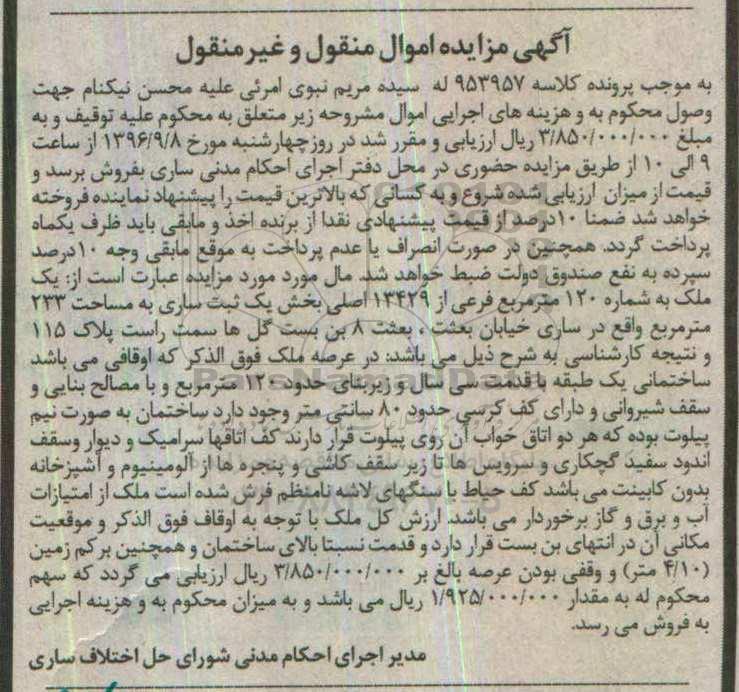 آگهی مزایده اموال منقول و غیر منقول
به موجب پرونده کلاسه ۹۵۳۹۵۷ له سیده مریم نبوی امرئی علیه محسن نیکنام جهت
وصول محکوم به و هزینه های اجرایی اموال مشروحه زیر متعلق به محکوم علیه توقیف و به
مبلغ ۳/۸۵۰/۰۰۰/۰۰۰ ریال ارزیابی و مقرر شد در روز چهارشنبه مورخ ۱۳۹۶/۹/۸ از ساعت
۹ الی ۱۰ از طریق مزایده حضوری در محل دفتر اجرای احکام مدنی ساری بفروش برسد و
قیمت از میزان ارزیابی شده شروع و به کسانی که بالاترین قیمت را پیشنهاد نماینده فروخته
خواهد شد ضمنا ۱۰درصد از قیمت پیشنهادی نقدا از برنده اخذ و مابقی باید ظرف یکماه
پرداخت گردد. همچنین در صورت انصراف یا عدم پرداخت به موقع مابقی وجه ۱۰درصد
سپرده به نفع صندوق دولت ضبط خواهد شد. مال مورد مورد مزایده عبارت است از: یک
ملک به شماره ۱۲۰ مترمربع فرعی از ۱۳۴۲۹ اصلی بخش یک ثبت ساری به مساحت ۲۳۳
مترمربع واقع در ساری خیابان بعثت ، بعثت ۸ بن بست گل ها سمت راست پلاک ۱۱۵
و نتیجه کارشناسی به شرح ذیل می باشد: در عرصه ملک فوق الذکر که اوقافی می باشد
ساختمانی یک طبقه با قدمت سی سال و زیربنای حدود ۱۲۰ مترمربع و با مصالح بنایی و
سقف شیروانی و دارای کف کرسی حدود ۸۰ سانتی متر وجود دارد ساختمان به صورت نیم
پیلوت بوده که هر دو اتاق خواب آن روی پیلوت قرار دارند کف اتاقها سرامیک و دیوار وسقف
اندود سفید گچکاری و سرویس ها تا زیر سقف کاشی و پنجره ها از آلومینیوم و آشپزخانه
بدون کابینت می باشد کف حیاط با سنگهای لاشه نامنظم فرش شده است ملک از امتیازات
آب و برق و گاز برخوردار می باشد. ارزش کل ملک با توجه به اوقاف فوق الذکر و موقعیت
مکانی آن در انتهای بن بست قرار دارد و قدمت نسبتا بالای ساختمان و همچنین بر کم زمین
(۴/۱۰ متر) و وقفی بودن عرصه بالغ بر ۳/۸۵۰/۰۰۰/۰۰۰ ریال ارزیابی می گردد که سهم
محکوم له به مقدار ۱/۹۲۵/۰۰۰/۰۰۰ ریال می باشد و به میزان محکوم به و هزینه اجرایی
به فروش می رسد.
مدیر اجرای احکام مدنی شورای حل اختلاف ساری
ParsNamadData